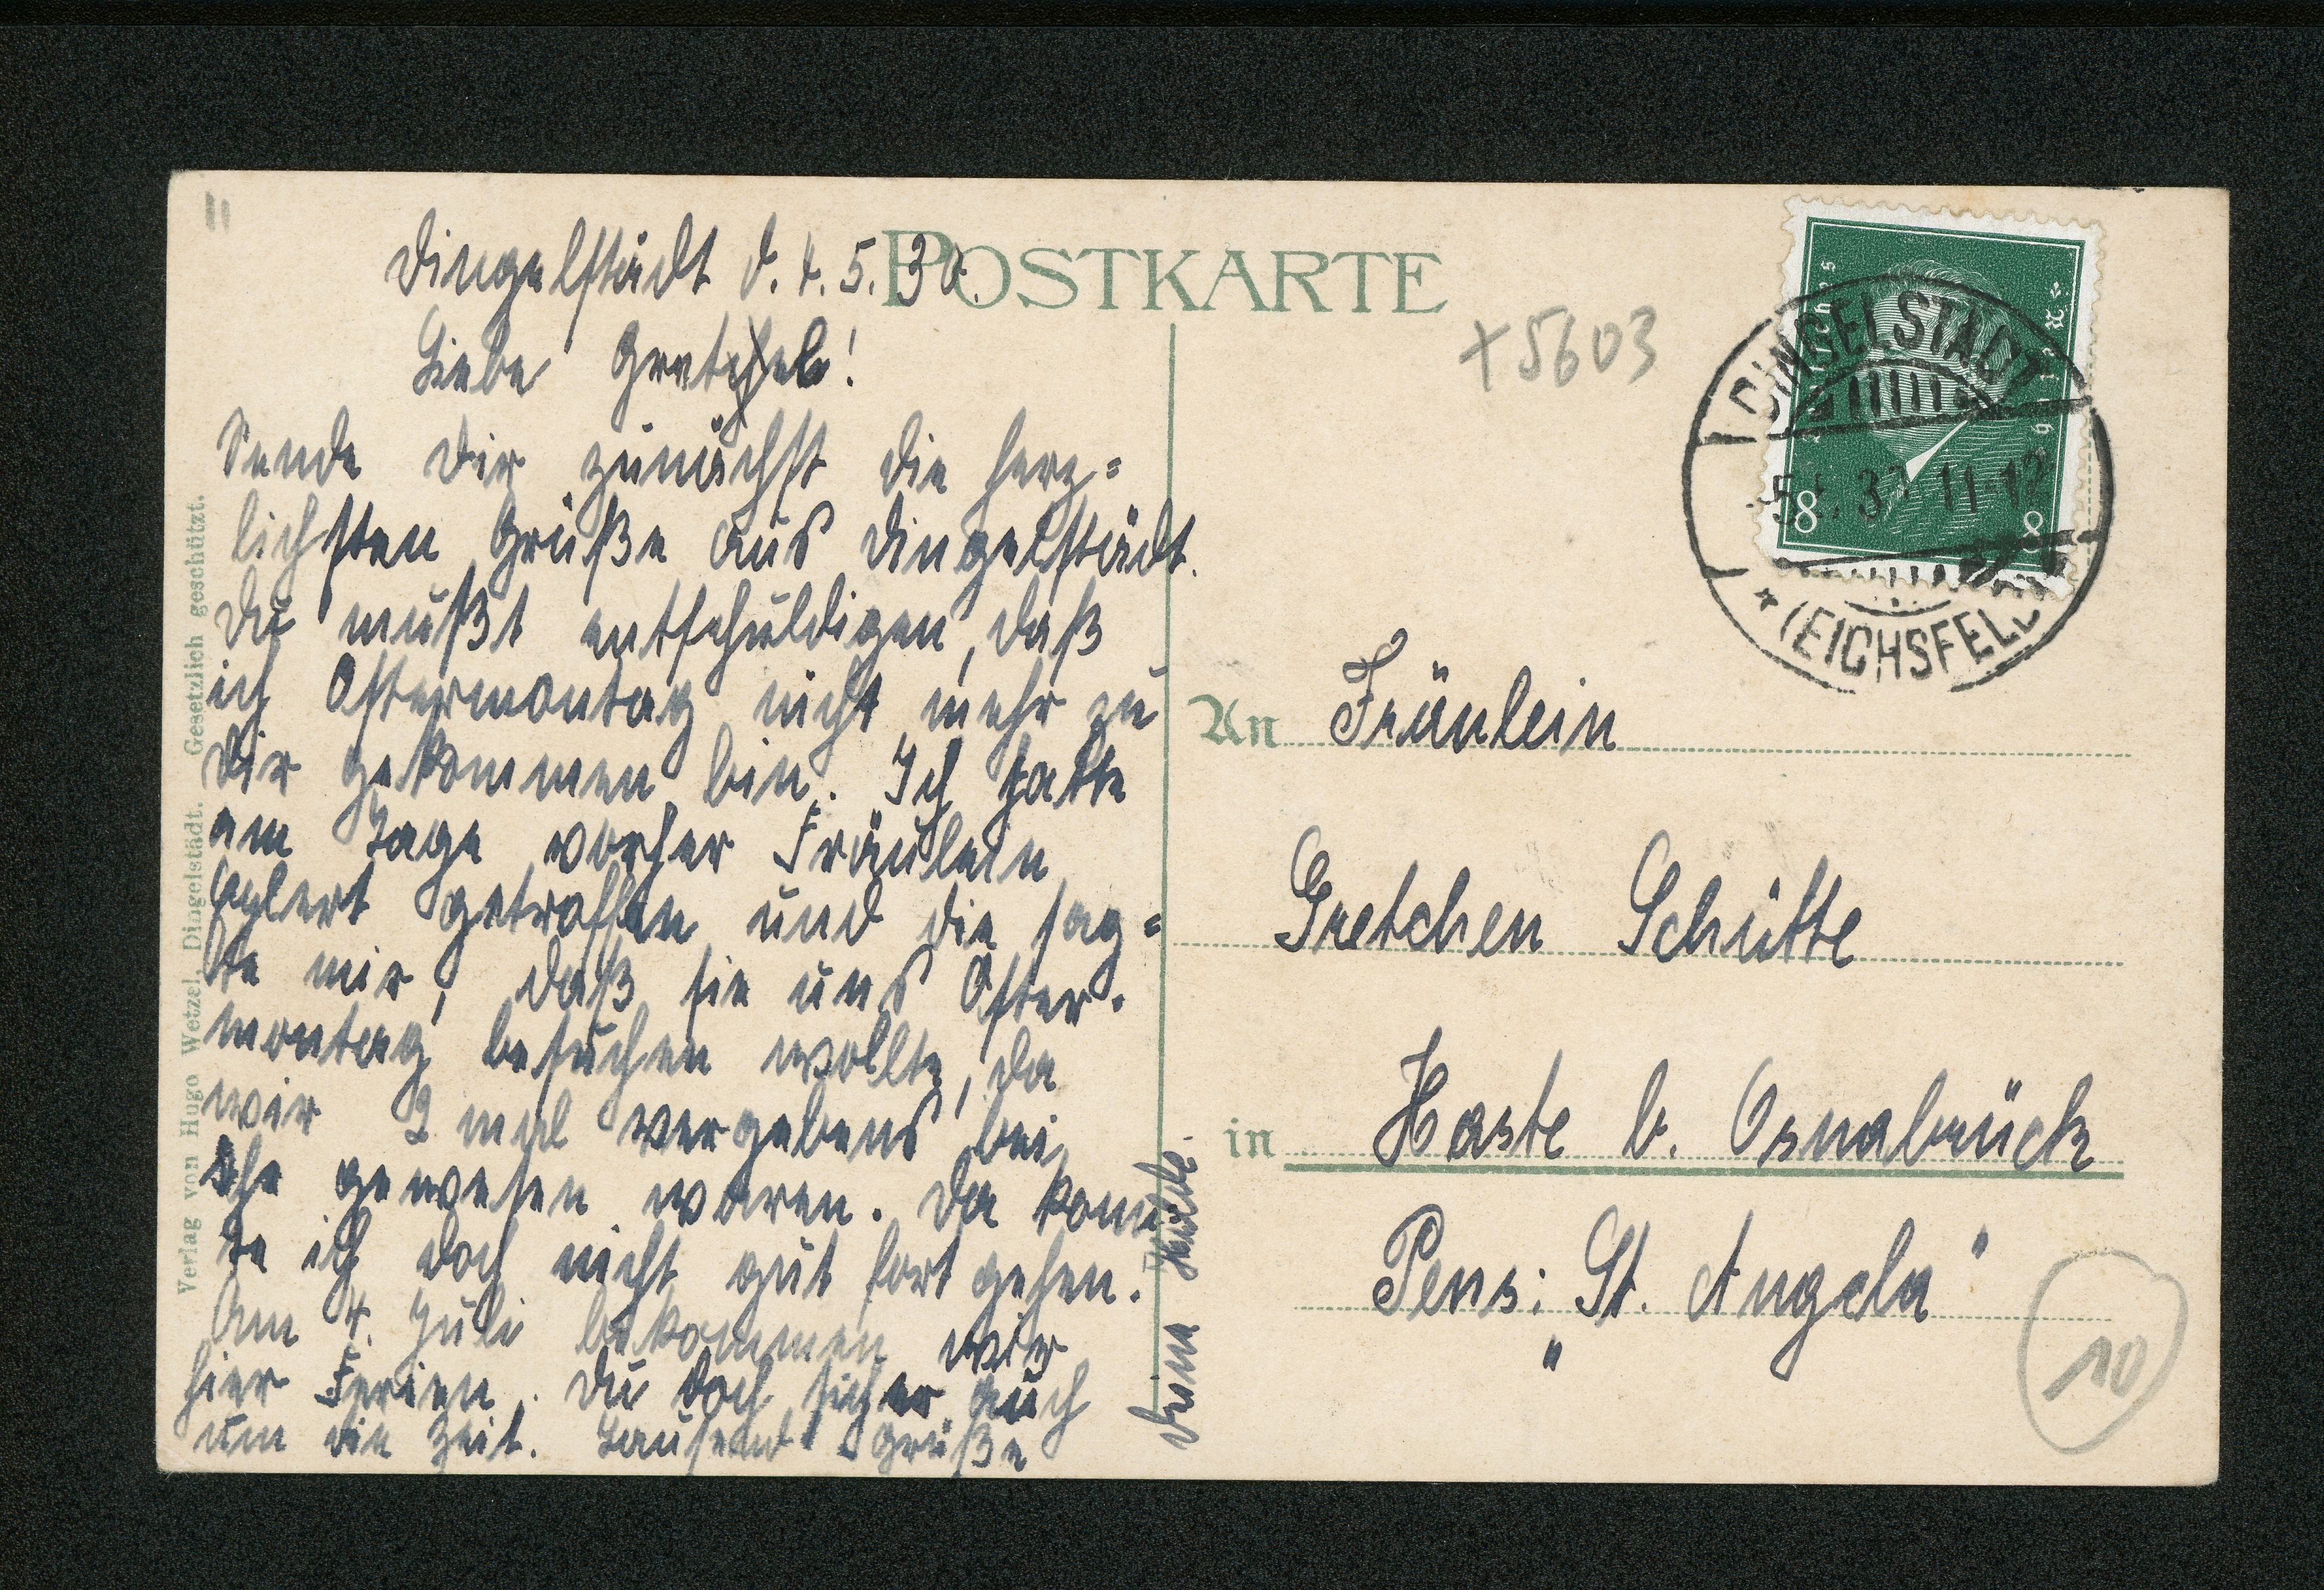 POSTKARTE
Dingelstädt d. 4. 5. 30.
Liebe Gretel!
Sende Dir zunächst die herz=
lichsten Grüße aus Dingelstädt.
Du mußt entschuldigen, daß
ich Ostermontag nicht mehr zu
Dir gekommen bin. Ich hatte
am Tage vorher Fräulein
getroffen und die sag=
te mir, daß sie uns Oster-
montag besuchen wollte, da
wir 2 mal vergebens bei
ihr gewesen waren. Da konn
te ich doch nicht gut fort gehen.
Am 4. Juli bekommen wir
hier Ferien. Du doch sicher auch
um die Zeit. Tausend Grüße
Deine Hilde.
Verlag von Hugo Wetzel, Dingelstädt. Gesetzlich geschützt.
+5603
8 8
DINGELSTÄDT
-5.5.30 11-12
* (EICHSFELD
An Fräulein
Gretchen Schütte
in Haste b. Osnabrück
Pens: "St. Angela"
10